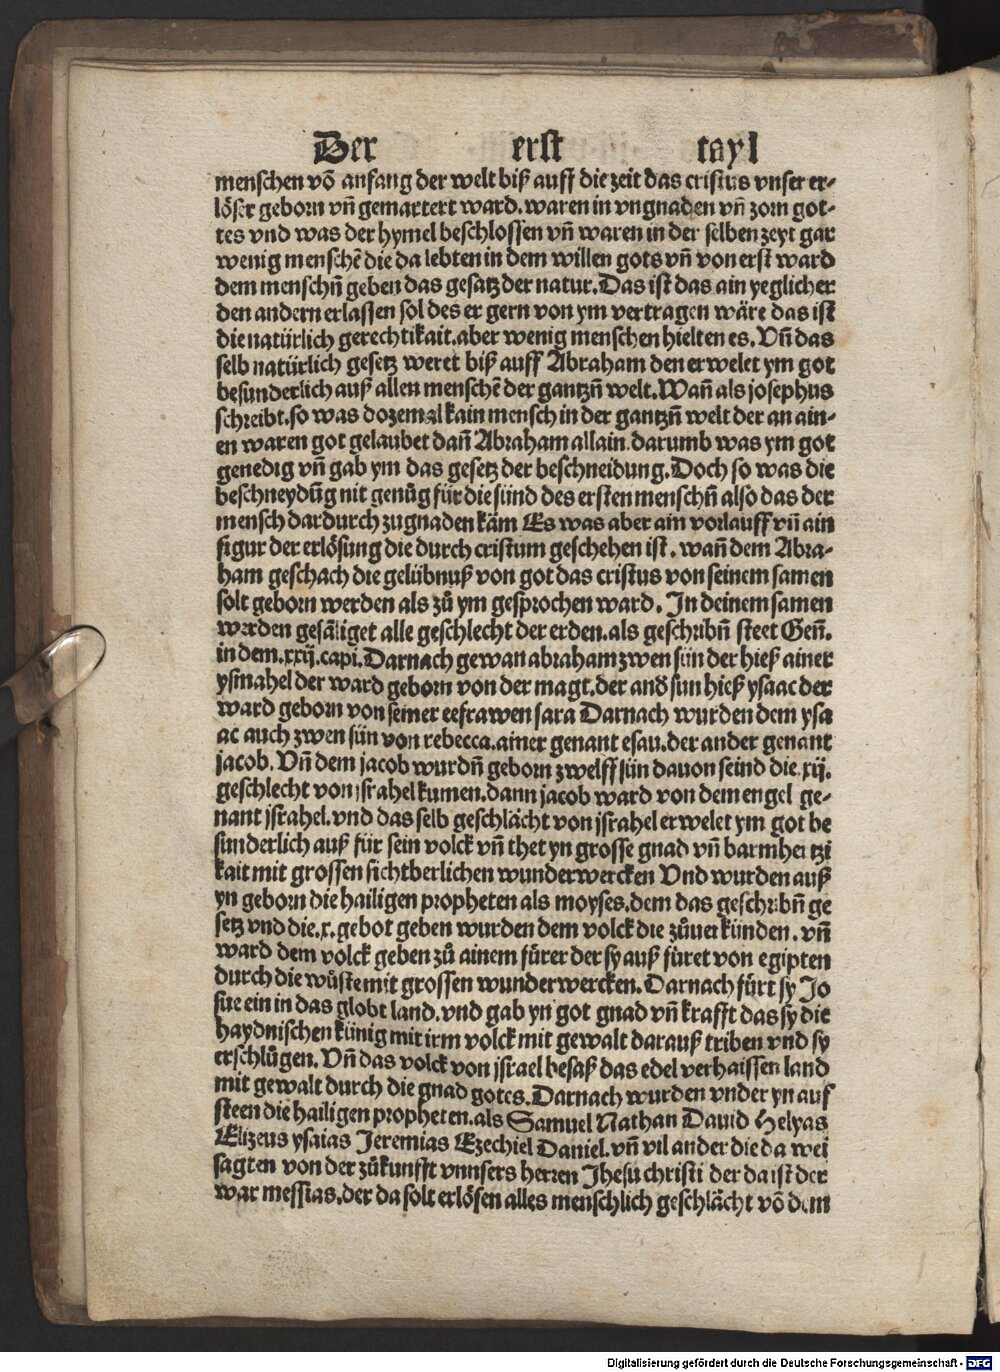 Der erst tayl
menschen vō anfang der welt biß auff die zeit das cristus vnser er-
löser geborn vn̄ gemartert ward. waren in vngnaden vn̄ zorn got-
tes vnd was der hymel beschlossen vn̄ waren in der selben zeyt gar
wenig menschē die da lebten in dem willen gots vn̄ von erst ward
dem menschn̄ geben das gesatz der natur. Das ist das ain yeglicher
den andern erlassen sol des er gern von ym vertragen wäre das ist
die natürlich gerechtikait. aber wenig menschen hielten es. Vn̄ das
selb natürlich gesetz weret biß auff Abraham den erwelet ym got
besunderlich auß allen menschē der gantzn̄ welt. Wan̄ als josephus
schreibt. so was dozemal kain mensch in der gantzn̄ welt der an ain-
en waren got gelaubet dan̄ Abraham allain. darumb was ym got
genedig vn̄ gab ym das gesetz der beschneidung. Doch so was die
beschneydūg nit genůg für die sünd des ersten menschn̄ also das der
mensch dardurch zu gnaden käm Es was aber ain vorlauff vn̄ ain
figur der erlösung die durch cristum geschehen ist. wan̄ dem Abra-
ham geschach die gelübnuß von got das cristus von seinem samen
solt geborn werden als zů ym gesprochen ward. In deinem samen
werden gesäliget alle geschlecht der erden. als geschribn̄ steet Gen̄.
in dem. xxij. capi. Darnach gewan abraham zwen sün der hieß ainer
ysmahel der ward geborn von der magt. der and sun hieß ysaac der
ward geborn von seiner eefrawen sara Darnach wurden dem ysa
ac auch zwen sün von rebecca. ainer genant esau. der ander genant
jacob. Vn̄ dem jacob wurdn̄ geborn zwelff sün dauon seind die. xij.
geschlecht von jsrahel kumen. dann jacob ward von dem engel ge-
nant jsrahel. vnd das selb geschlächt von jsrahel erwelet ym got be
sunderlich auß für sein volck vn̄ thet yn grosse gnad vn̄ barmhertzi
kait mit grossen sichtberlichen wunderwercken Vnd wurden auß
yn geborn die hailigen propheten als moyses. dem das geschribn̄ ge
setz vnd die. x. gebot geben wurden dem volck die zůuerkünden. vn̄
ward dem volck geben zů ainem fürer der sy auß füret von egipten
durch die wüste mit grossen wunderwercken. Darnach fürt sy Jo
sue ein in das globt land. vnd gab yn got gnad vn̄ krafft das sy die
haydnischen künig mit irm volck mit gewalt darauß triben vnd sy
erschlůgen. Vn̄ das volck von jsrael besaß das edel verhaissen land
mit gewalt durch die gnad gotes. Darnach wurden vnder yn auf
steen die hailigen propheten. als Samuel Nathan Dauid Helyas
Elizeus ysaias Jeremias Ezechiel Daniel. vn̄ vil ander die da wei
sagten von der zůkunfft vnnsers herren Jhesu christi der da ist der
war messias. der da solt erlösen alles menschlich geschlächt vō dem
Digitalisierung gefördert durch die Deutsche Forschungsgemeinschaft - DFG